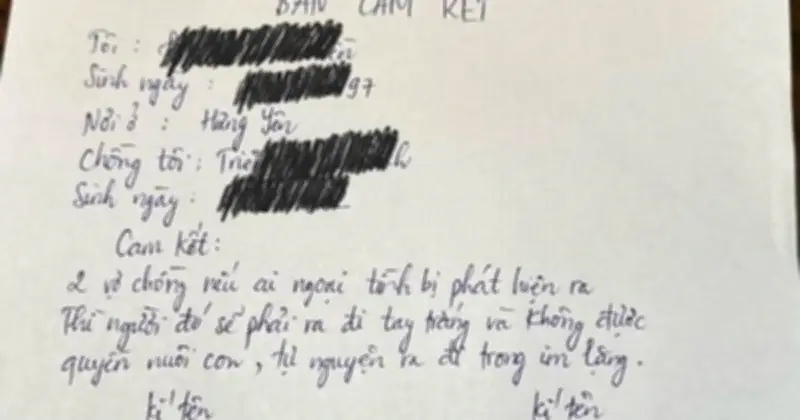 BẢN CAM KẾT
Tôi :
Sinh ngày : 97
Nơi ở : Hưng Yên
Chồng tôi : Triệ h
Sinh ngày :
Cam kết :
2 vợ chồng nếu ai ngoại tình bị phát hiện ra
Thì người đó sẽ phải ra đi tay trắng và không được
quyền nuôi con , tự nguyện ra đi trong im lặng .
kí tên kí tên